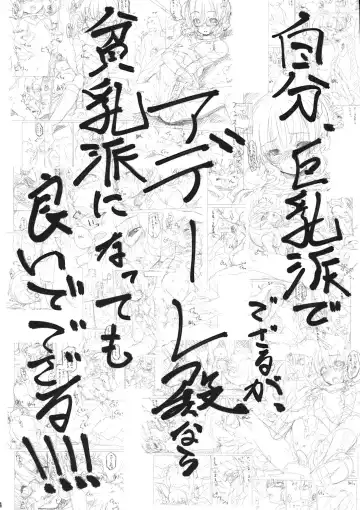 自分、巨乳派で
ござるが、
アデーレ殿なら
貧乳派になっても
良いでござる!!!!